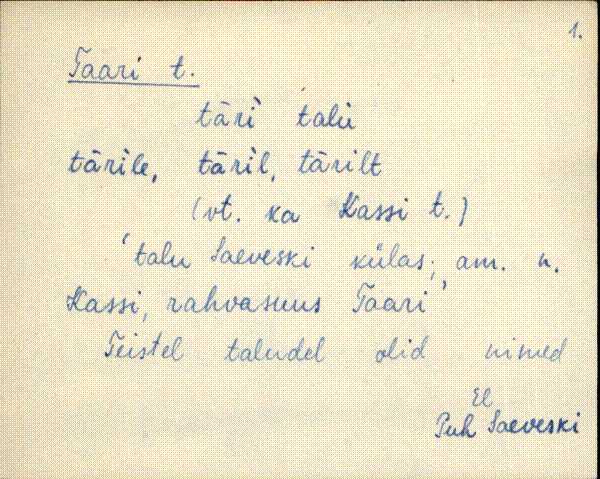 1.
Taari t.
tāri talu
tārile, tāril, tārilt
(vt. ka Kassi t.)
'talu Saeveski külas; am. n.
Kassi, rahvasuus Taari'
Teistel taludel olid nimed
El
Puh Saeveski